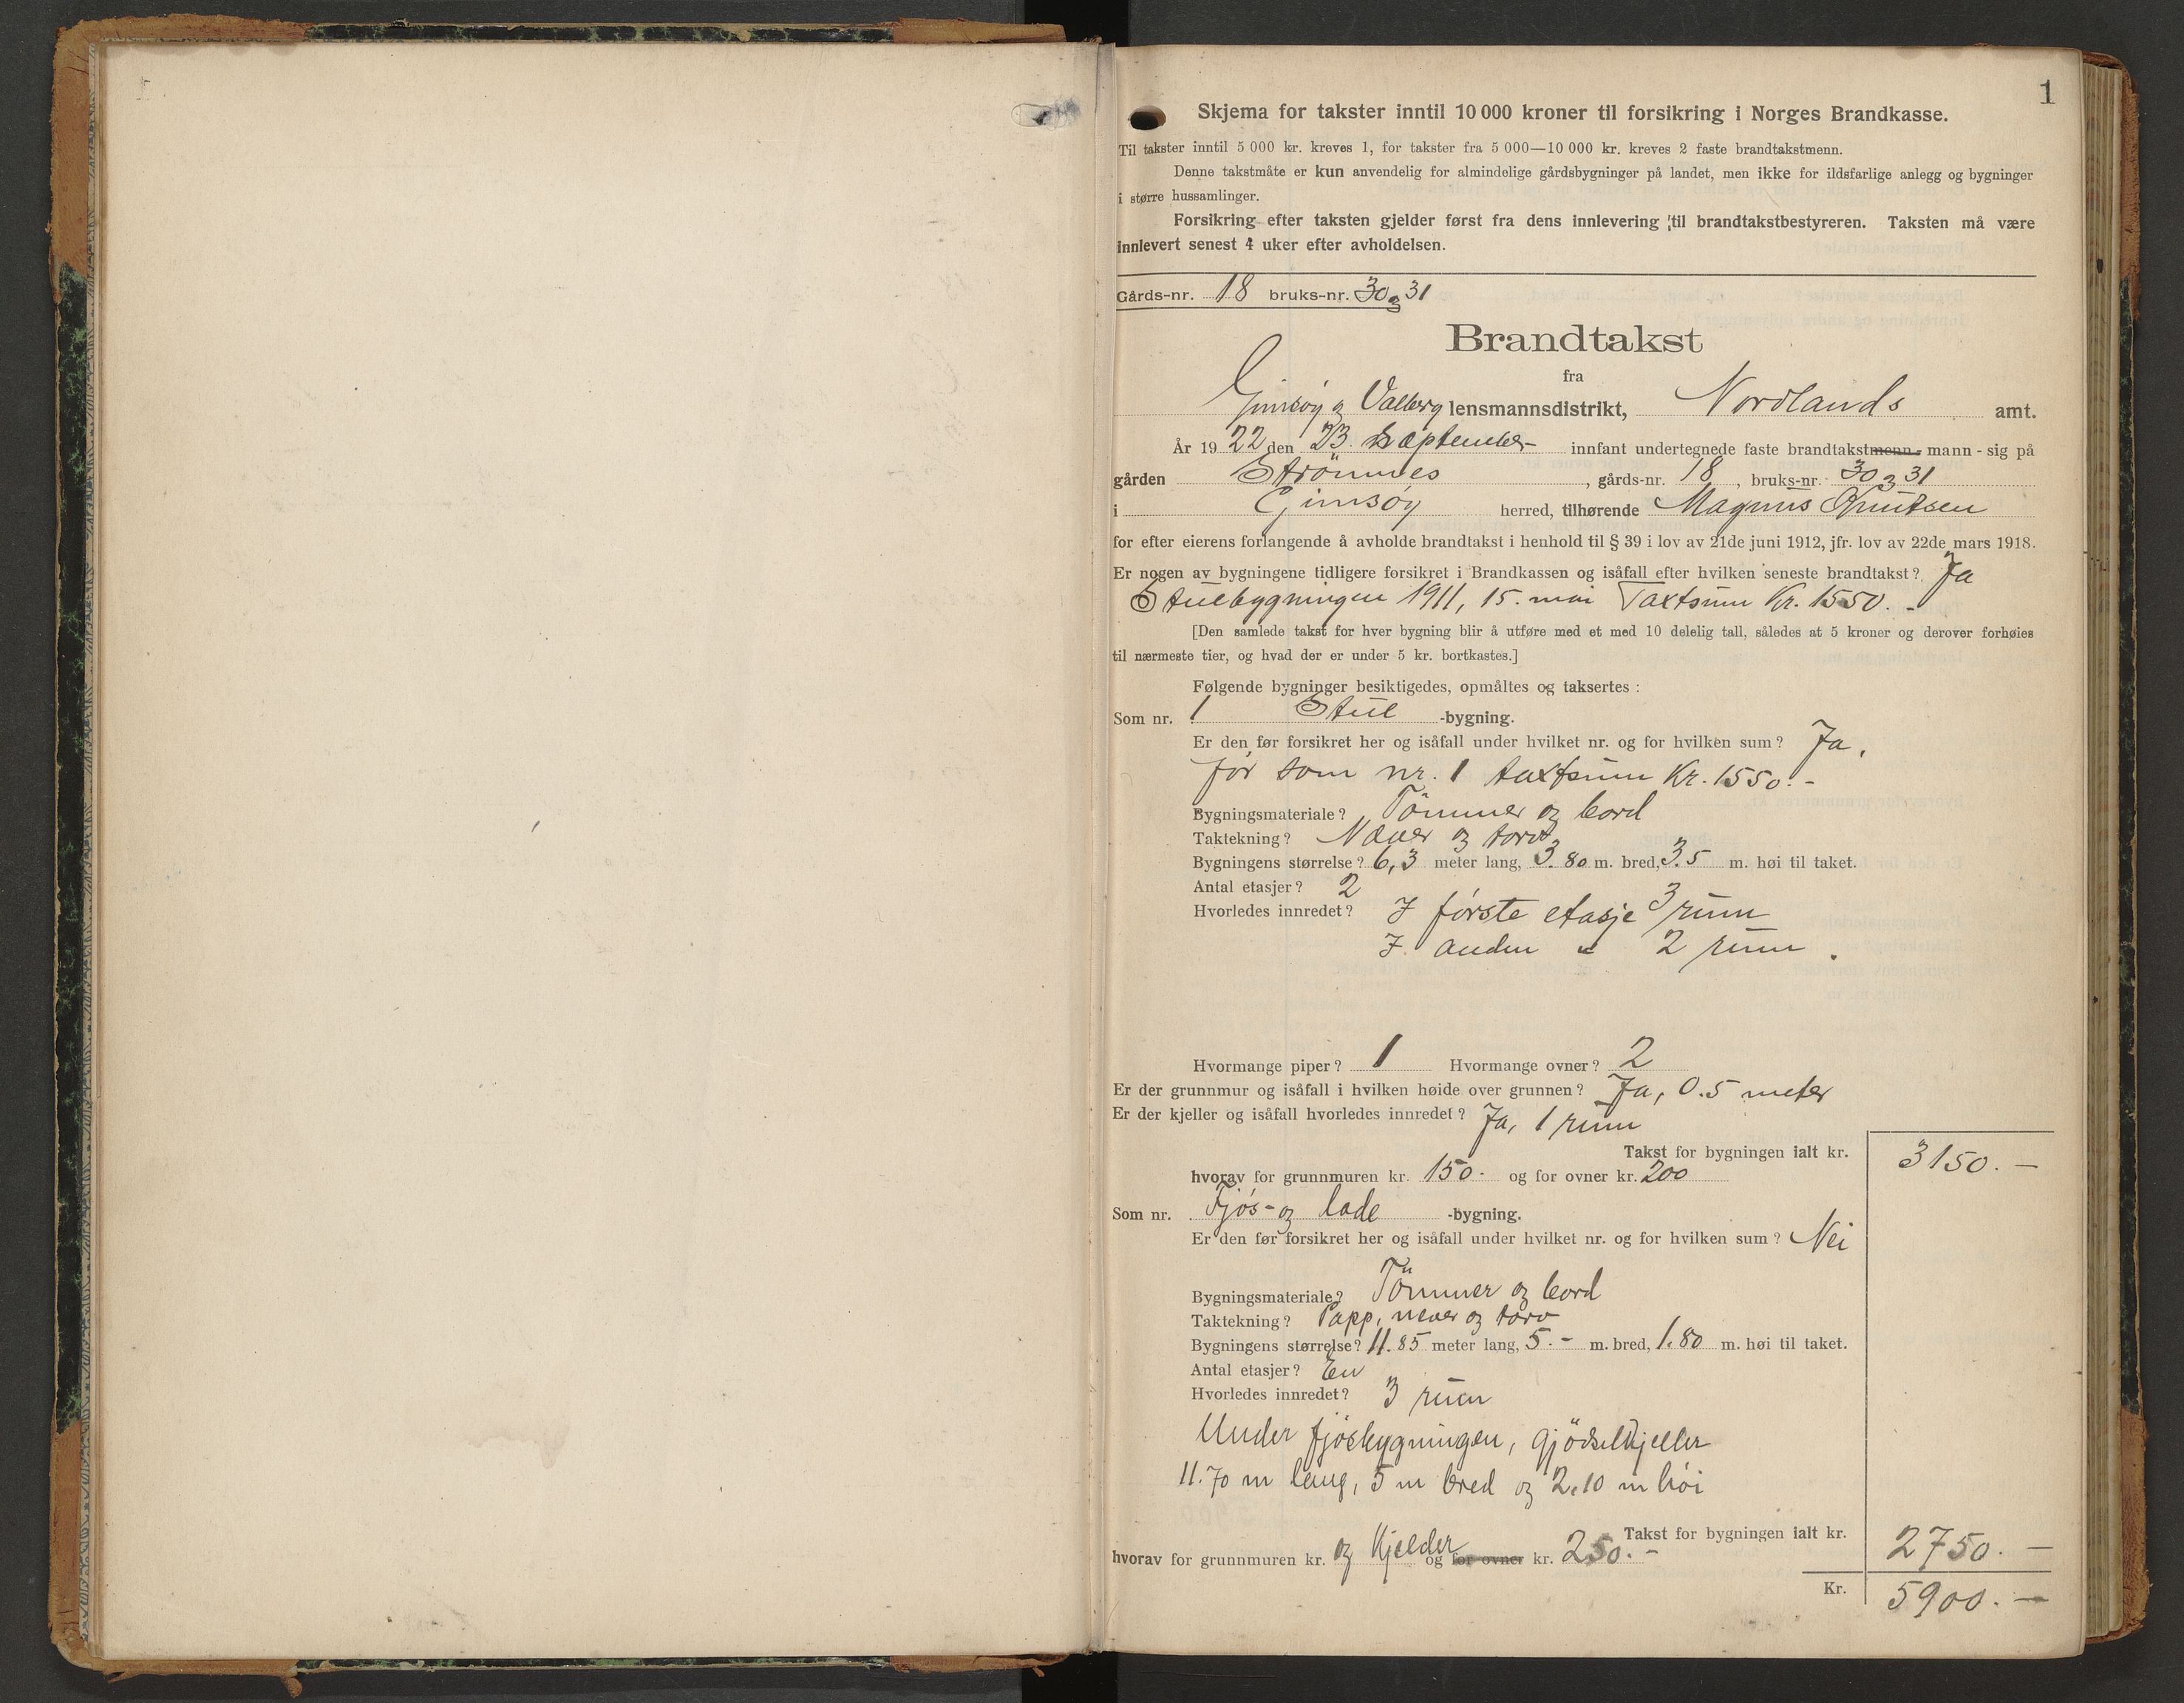 1
Skjema for takster inntil 10 000 kroner til forsikring i Norges Brandkasse.
Til takster inntil 5 000 kr. kreves 1, for takster fra 5 000—10 000 kr. kreves 2 faste brandtakstmenn.
Denne takstmåte er kun anvendelig for almindelige gårdsbygninger på landet, men ikke for ildsfarlige anlegg og bygninger
i større hussamlinger.
Forsikring efter taksten gjelder først fra dens innlevering til brandtakstbestyreren. Taksten må være
innlevert senest 4 uker efter avholdelsen.
Gårds-nr. 18 bruks-nr. 30 og 31
Brandtakst
fra
Gimsøy og Valberg lensmannsdistrikt, Nordlands amt.
År 1922 den 23. September innfant undertegnede faste brandtakstmenn - mann - sig på
gården Strömnes, gårds-nr. 18, bruks-nr. 30 og 31
i Gimsøy herred, tilhørende Magnus Knutsen
for efter eierens forlangende å avholde brandtakst i henhold til § 39 i lov av 21de juni 1912, jfr. lov av 22de mars 1918.
Er nogen av bygningene tidligere forsikret i Brandkassen og isåfall efter hvilken seneste brandtakst? Ja
Stuebygningen 1911, 15. mai Taxtsum Kr. 1550. -
[Den samlede takst for hver bygning blir å utføre med et med 10 delelig tall, således at 5 kroner og derover forhøies
til nærmeste tier, og hvad der er under 5 kr. bortkastes.]
Følgende bygninger besiktigedes, opmåltes og taksertes :
Som nr. 1 Stue -bygning.
Er den før forsikret her og isåfall under hvilket nr. og for hvilken sum? Ja,
før som nr. 1 taxtsum Kr. 1550.-
Bygningsmateriale? Tömmer og bord
Taktekning? Næver og torv
Bygningens størrelse? 6,3 meter lang, 3.80 m. bred, 3.5 m. høi til taket.
Antal etasjer? 2
Hvorledes innredet? I første etasje 3 rum
I anden " 2 rum.
Hvormange piper? 1 Hvormange ovner? 2
Er der grunnmur og isåfall i hvilken høide over grunnen? Ja, 0.5 meter
Er der kjeller og isåfall hvorledes innredet? Ja, 1 rum
Takst for bygningen ialt kr. 3150.-
hvorav for grunnmuren kr. 150.- og for ovner kr. 200
Som nr. Fjøs- og lade -bygning.
Er den før forsikret her og isåfall under hvilket nr. og for hvilken sum? Nei
Bygningsmateriale? Tömmer og bord
Taktekning? Papp, never og torv
Bygningens størrelse? 11.85 meter lang, 5.- m. bred, 1.80 m. høi til taket.
Antal etasjer? En
Hvorledes innredet? 3 rum
Under fjøsbygningen, gjödselkjeller
11.70 m lang, 5 m bred og 2.10 m høi
Takst for bygningen ialt kr. 2750.-
hvorav for grunnmuren kr. og Kjelder og for ovner kr. 250.-
Kr. 5900.-